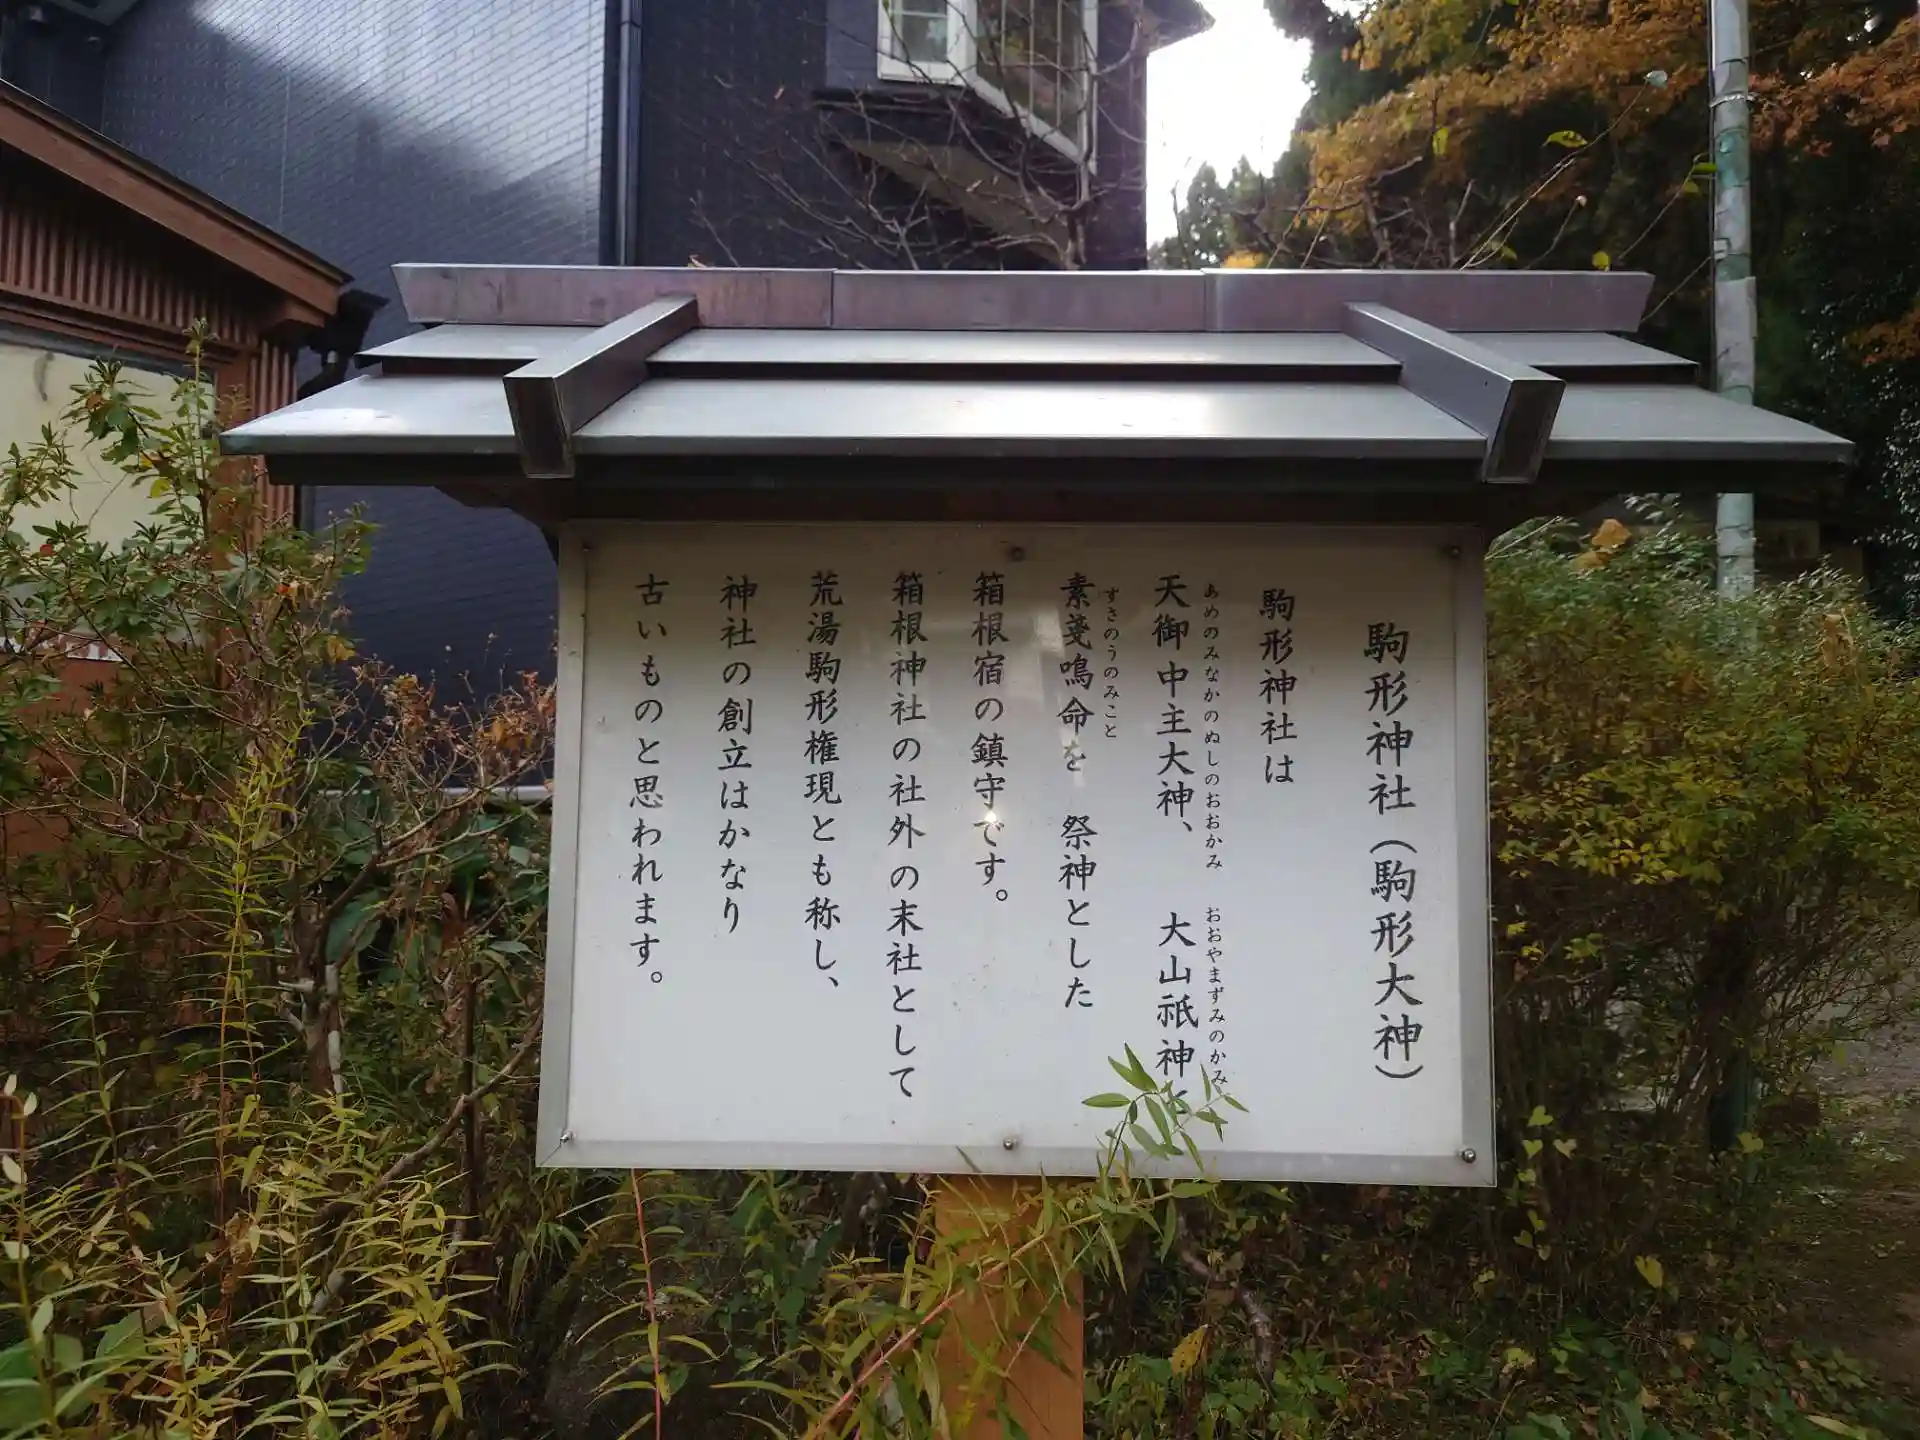 駒形神社（駒形大神）
駒形神社は
あめのみなかのぬしのおおかみ おおやまずみのかみ
天御中主大神、 大山祇神と
すさのうのみこと
素戔鳴命を 祭神とした
箱根宿の鎮守です。
箱根神社の社外の末社として
荒湯駒形権現とも称し、
神社の創立はかなり
古いものと思われます。